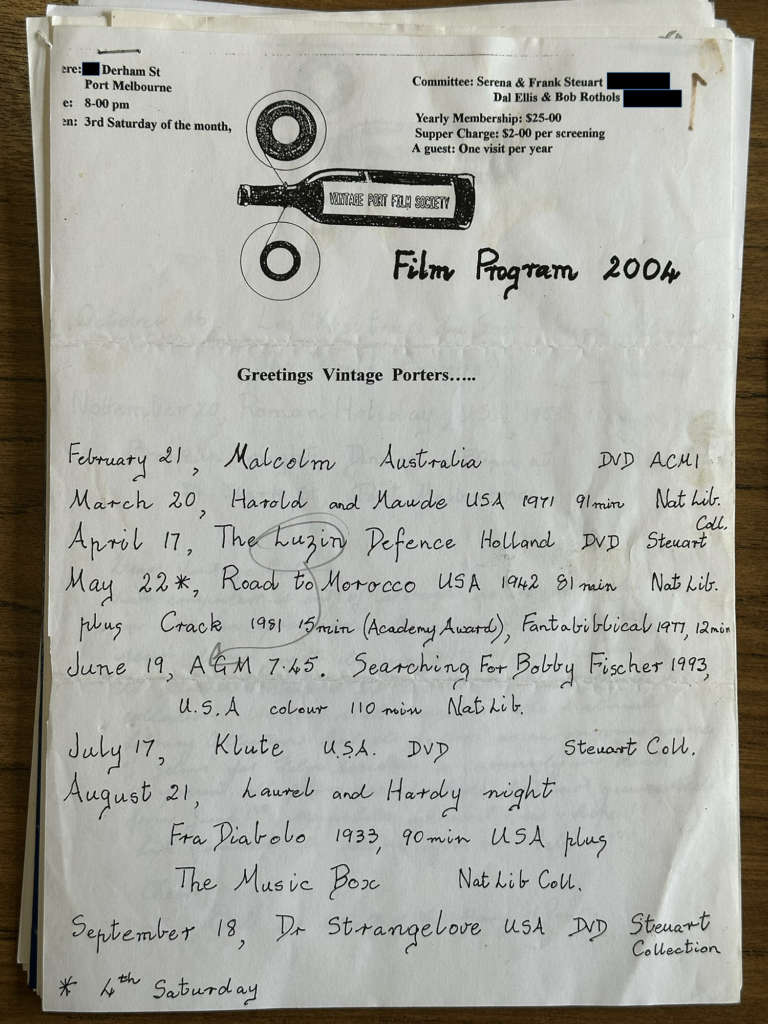 ere: Derham St
Port Melbourne
e: 8-00 pm
en: 3rd Saturday of the month,
Committee: Serena & Frank Steuart
Dal Ellis & Bob Rothols
Yearly Membership: $25-00
Supper Charge: $2-00 per screening
A guest: One visit per year
VINTAGE PORT FILM SOCIETY
Film Program 2004
Greetings Vintage Porters.....
February 21, Malcolm Australia DVD ACMI
March 20, Harold and Maude USA 1971 91min Nat Lib. Coll.
April 17, The Luzin Defence Holland DVD Steuart
May 22*, Road to Morocco USA 1942 81 min Nat Lib.
plus Crack 1981 15min (Academy Award), Fantabiblical 1977, 12min
June 19, AGM 7.45. Searching For Bobby Fischer 1993,
U.S.A colour 110 min Nat Lib.
July 17, Klute U.S.A. DVD Steuart Coll.
August 21, Laurel and Hardy night
Fra Diabolo 1933, 90min USA plus
The Music Box Nat Lib Coll.
September 18, Dr Strangelove USA DVD Steuart Collection
* 4th Saturday